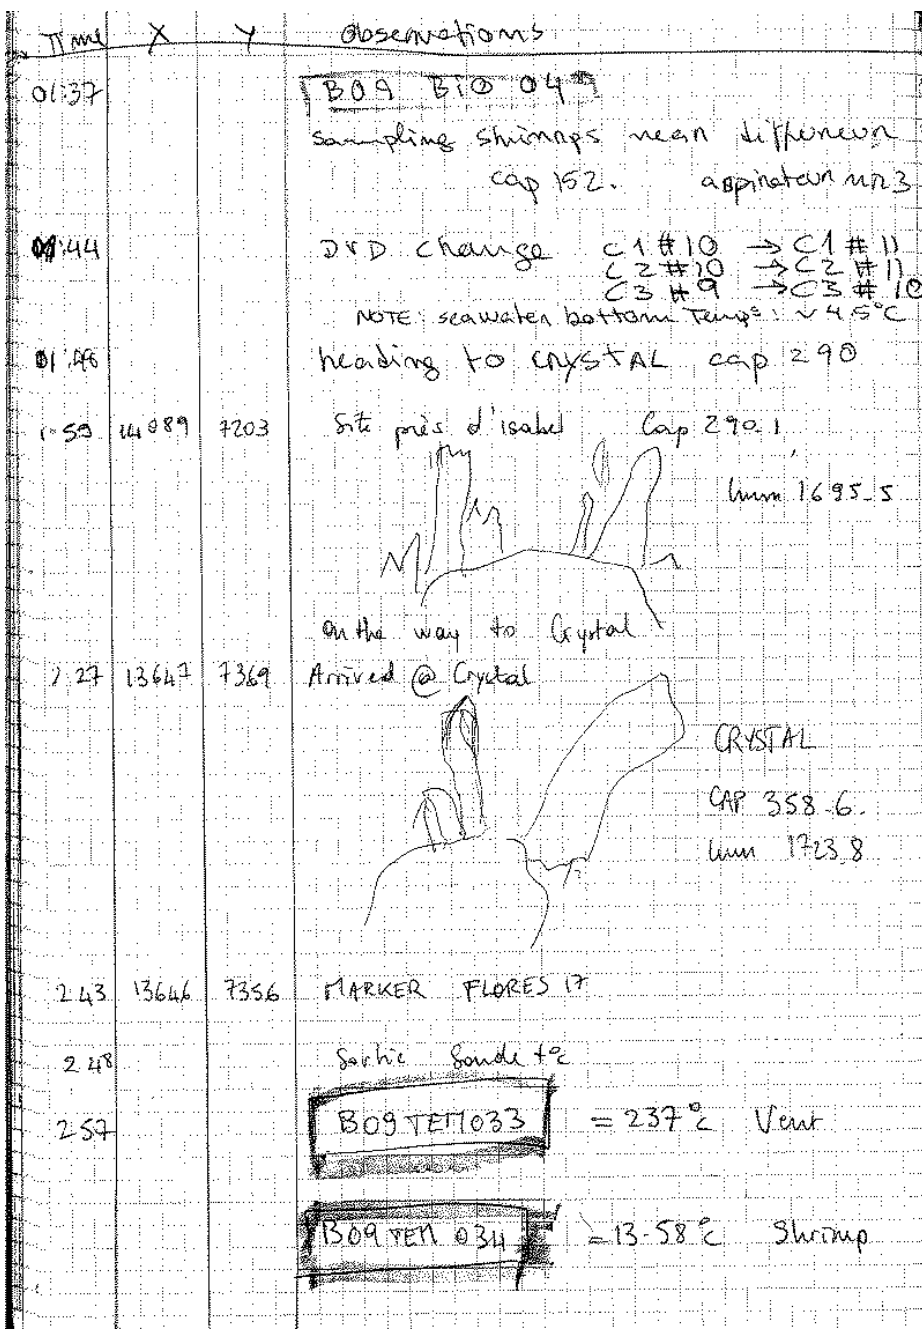 Time X Y Observations
01:37 B09 BIO 049
sampling shrimps near diffuseur
cap 152. aspirateur nr 3
01:44 DVD change C1 #10 → C1 # 11
C2 #10 → C2 # 11
C3 # 9 → C3 # 10
NOTE: seawater bottom Temp: ~ 4.5°C
01:46 heading to CRYSTAL cap 290
1:59 14089 7203 Site près d'isabel Cap 290.1
Imm 1695.5
On the way to Crystal
2:27 13647 7369 Arrived @ Crystal
CRYSTAL
CAP 358.6.
Imm 1723.8
2 43 13646 7356 MARKER FLORES 17
2 48 Sortie Sonde t°c
2 57 B09 TEM 033 = 237°c Vent
B09 TEM 034 = 13.58°c Shrimp